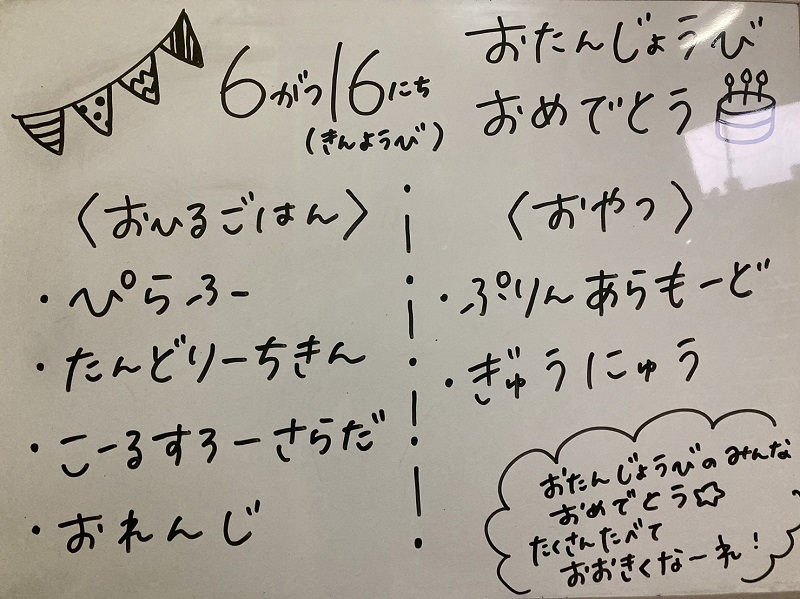 6がつ16にち
(きんようび)
おたんじょうび
おめでとう
〈おひるごはん〉
・ぴらふー
・たんどりーちきん
・こーるすろーさらだ
・おれんじ
〈おやつ〉
・ぷりんあらもーど
・ぎゅうにゅう
おたんじょうびのみんな
おめでとう☆
たくさんたべて
おおきくなーれ!